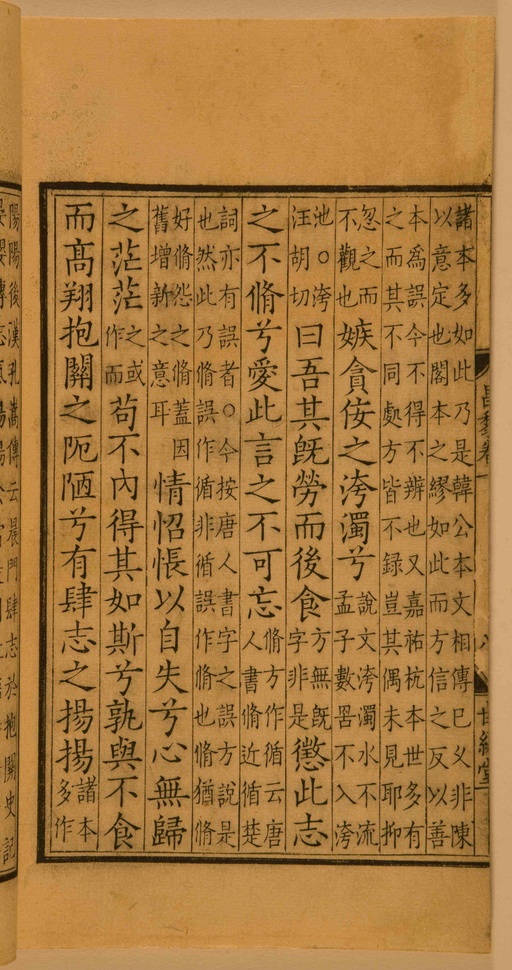 諸本多如此乃是韓公本文相傳已久非陳
以意定也閣本之繆如此而方信之反以善
本為誤今不得不辨也又嘉祐杭本世多有
之而其不同處方皆不録豈其偶未見耶抑
忽之而不觀也嫉貪佞之洿濁兮說文洿濁水不流孟子數罟不入洿
池○洿汪胡切曰吾其旣勞而後食方無旣字非是懲此志
之不脩兮愛此言之不可忘脩方作循云唐人書脩近循楚
詞亦有誤者○今按唐人書字之誤方說是
也然此乃脩誤作循非循誤作脩也脩猶脩
好脩怨之脩蓋因舊增新之意耳情怊悵以自失兮心無歸
之茫茫之或作而苟不內得其如斯兮孰與不食
而高翔抱關之阨陋兮有肆志之揚揚諸本多作
陽陽後漢孔嵩傳云晨門肆志於抱關史記